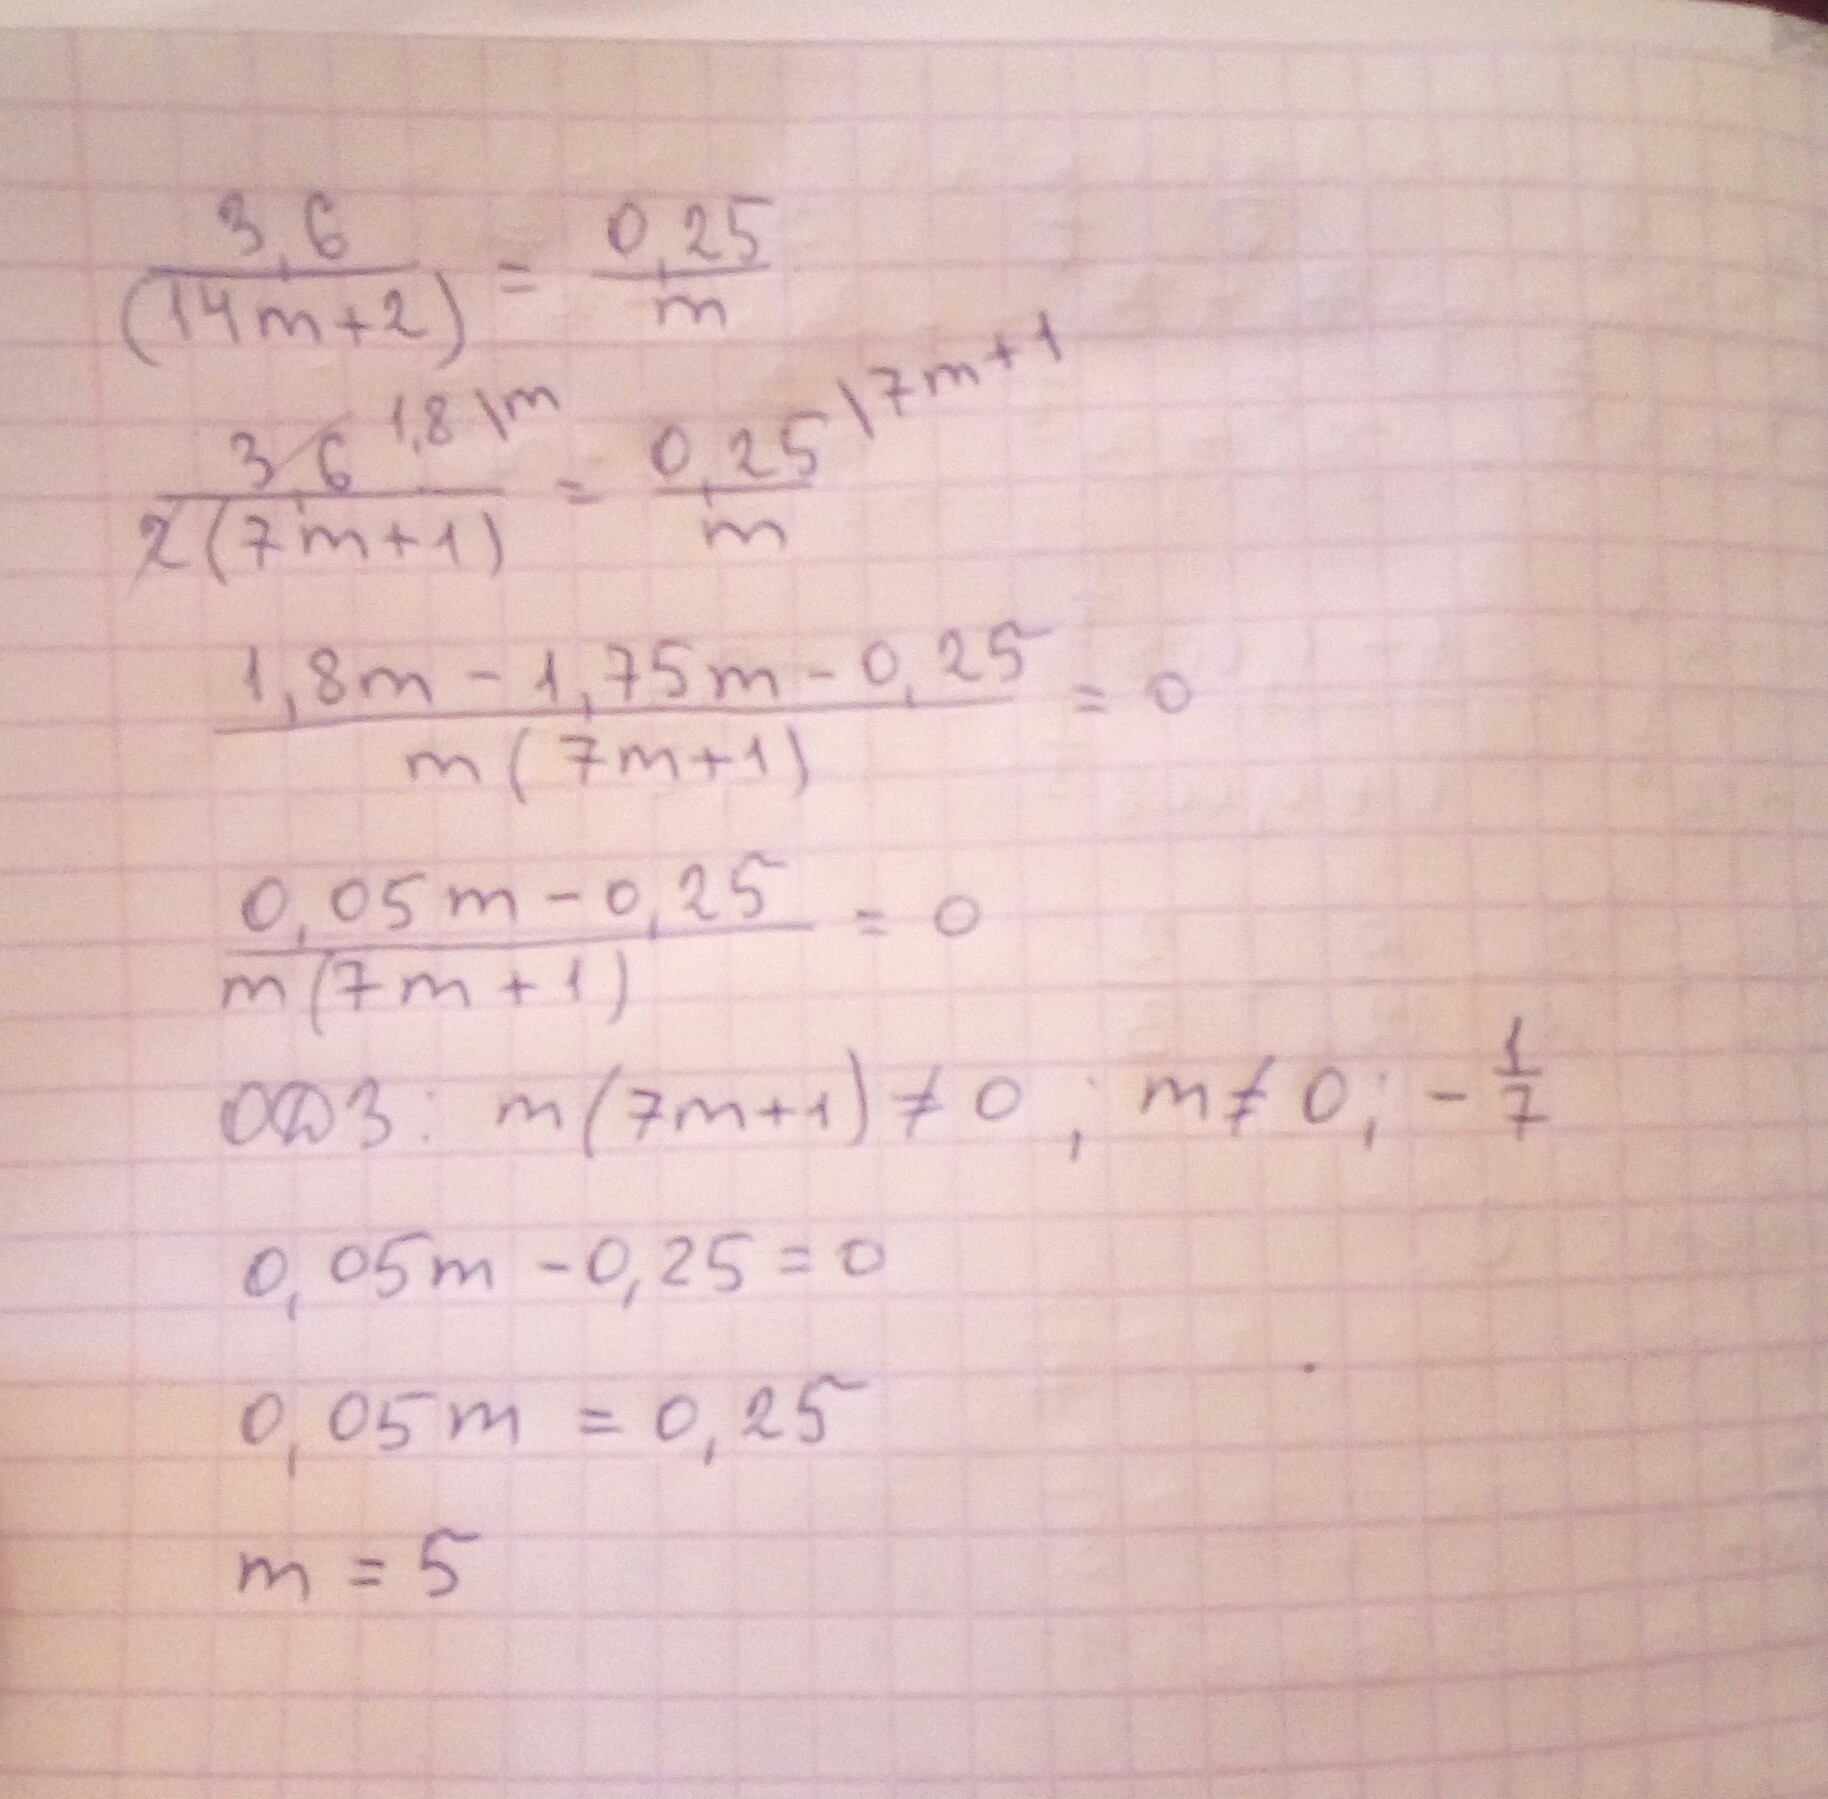 3,6/(14m+2) = 0,25/m
3,6 1,8 \m/2(7m+1) = 0,25 \7m+1/m
1,8m - 1,75m - 0,25/m(7m+1) = 0
0,05m - 0,25/m(7m+1) = 0
ОДЗ: m(7m+1) ≠ 0; m ≠ 0; -1/7
0,05m - 0,25 = 0
0,05m = 0,25
m = 5